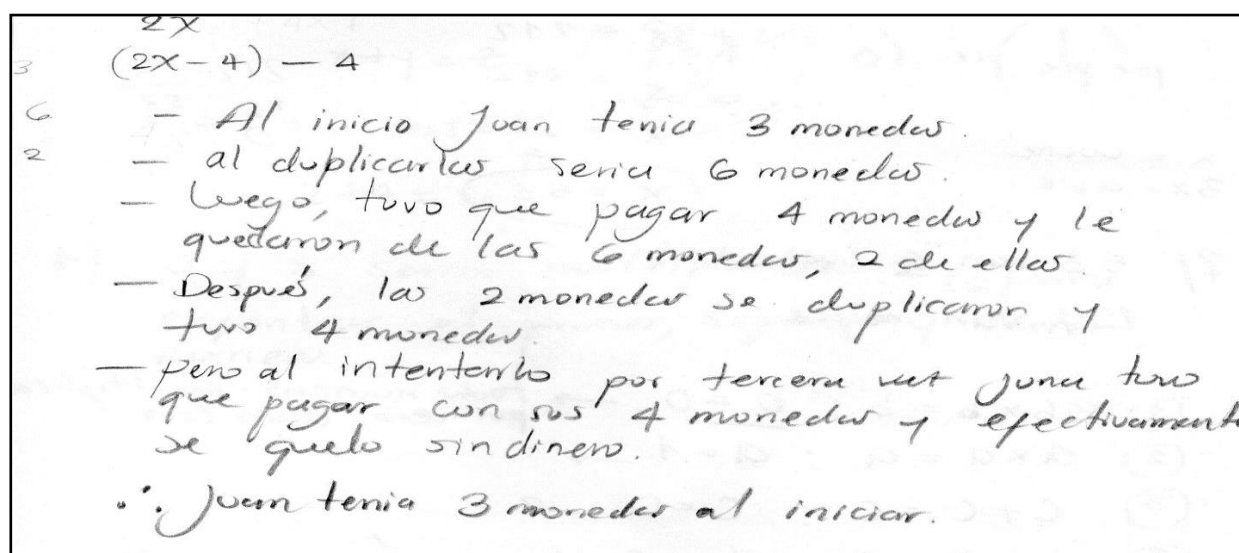 2x
3 (2x-4) - 4
6 - Al inicio Juan tenia 3 monedas.
2 - al duplicarlas seria 6 monedas.
- Luego, tuvo que pagar 4 monedas y le
quedaron de las 6 monedas, 2 de ellas.
- Después, las 2 monedas se duplicaron y
tuvo 4 monedas.
- pero al intentarlo por tercera vez tuvo
que pagar con sus 4 monedas y efectivamente
se quedo sin dinero.
∴ Juan tenia 3 monedas al iniciar.